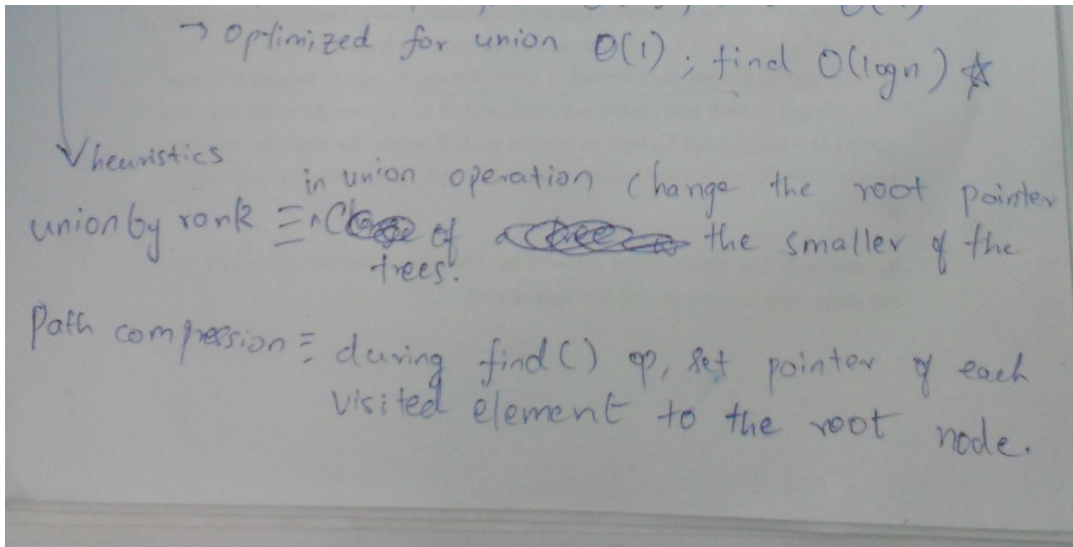 → Optimized for union O(1) ; find O(logn) ☆
heuristics
in union operation change the root pointer
union by rank ≡ of the smaller of the
trees.
Path compression ≡ during find() op, set pointer of each
visited element to the root node.